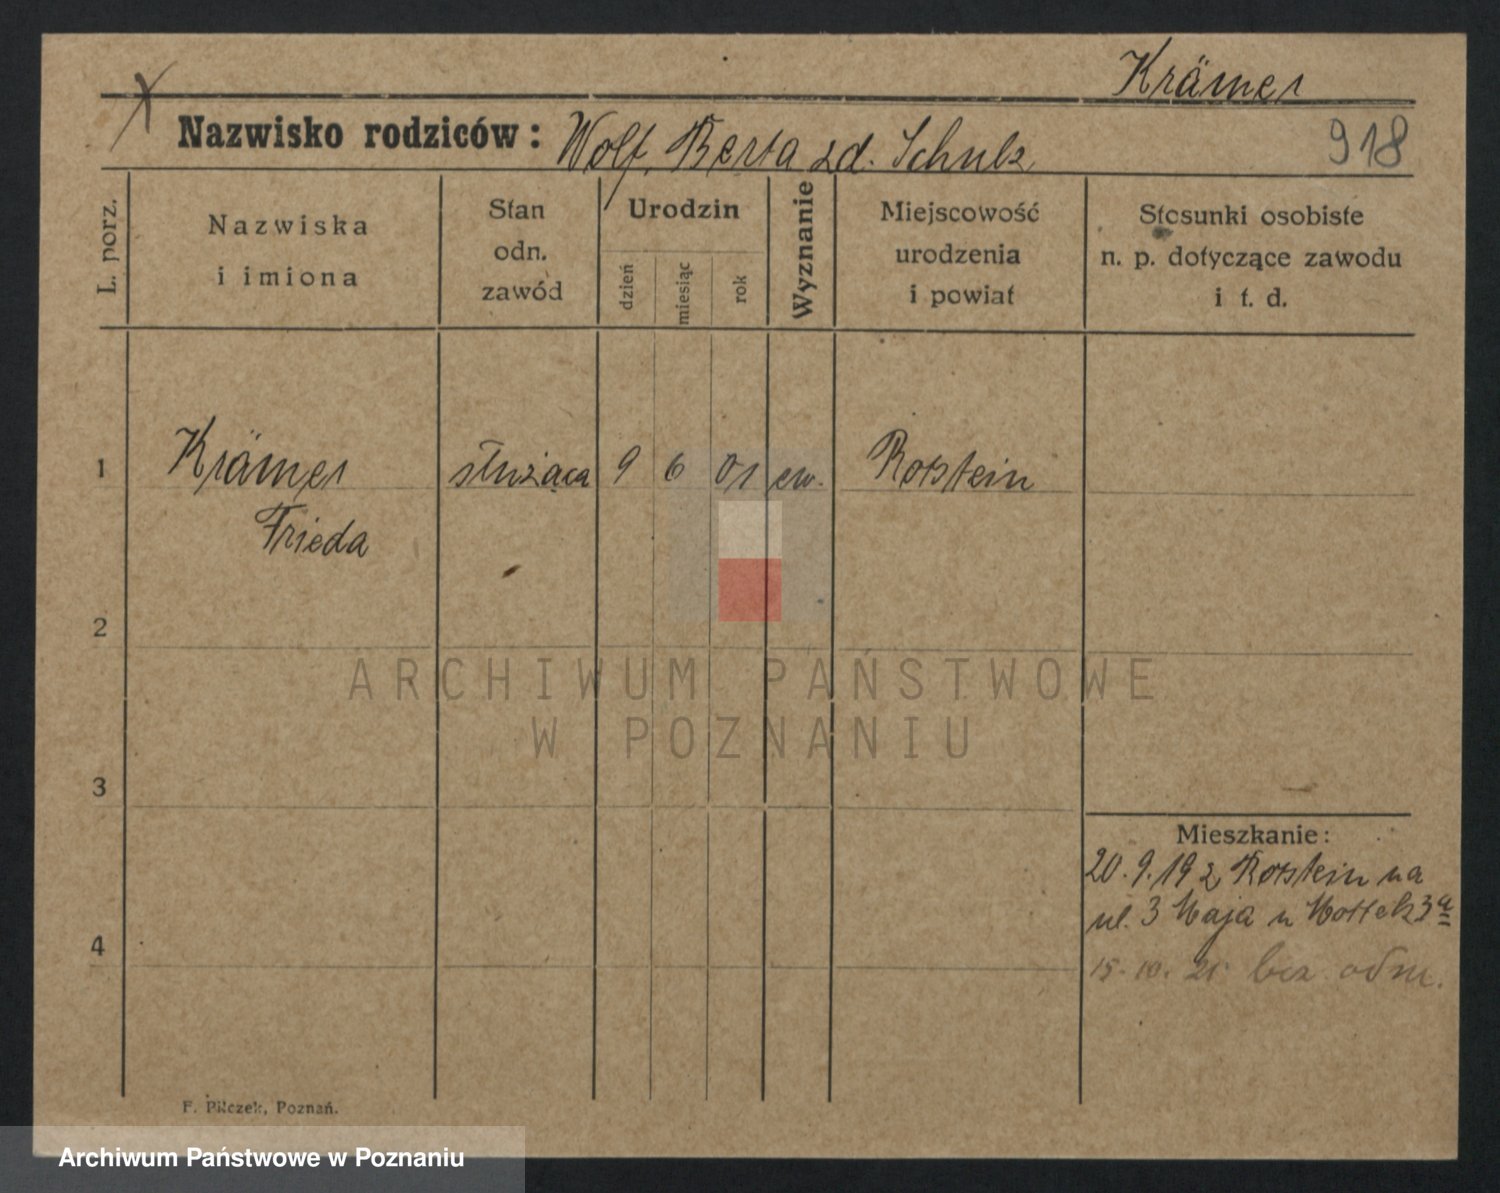 Krämer
Nazwisko rodziców: Wolf, Berta zd. Schulz
918
L. porz.
Nazwiska
i imiona
Stan
odn.
zawód
Urodzin
dzień
miesiąc
rok
Wyznanie
Miejscowość
urodzenia
i powiat
Stosunki osobiste
n. p. dotyczące zawodu
i t. d.
1 Krämer służąca 9 6 01 ew. Rotstein
Frieda
2
ARCHIWUM PAŃSTWOWE
W POZNANIU
3
Mieszkanie:
20.9.19 z Rotstein na
ul. 3 Maja u 3a
4
15.10.21 bez odm.
F. Pilczek, Poznań.
Archiwum Państwowe w Poznaniu